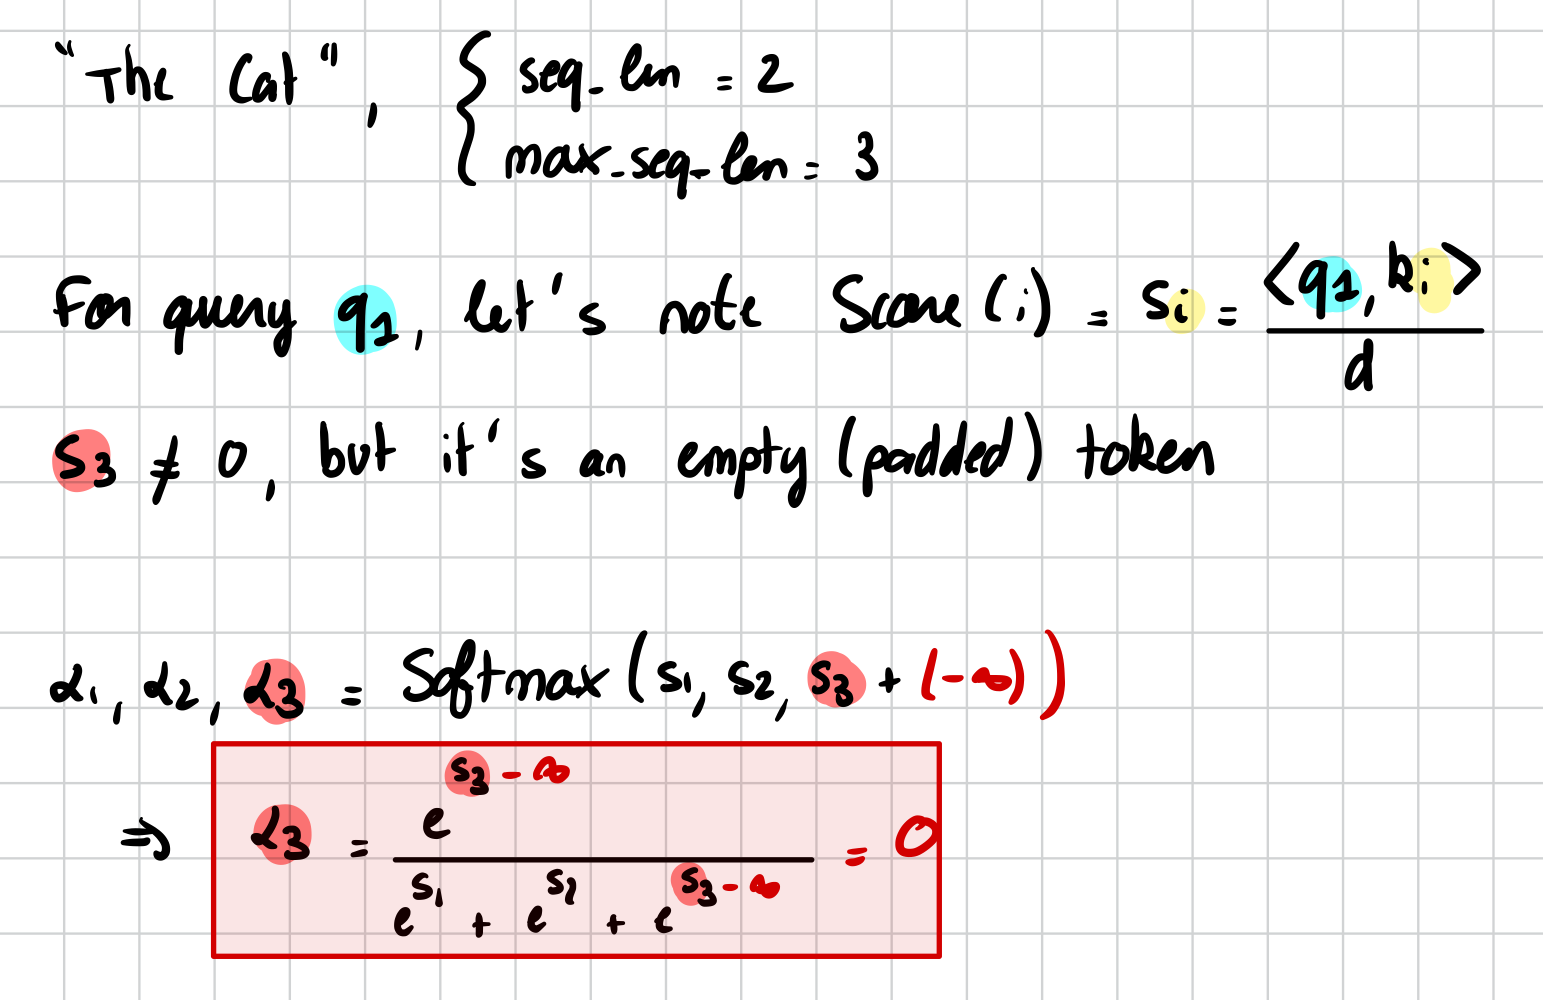 "The Cat", { seq_len = 2
max_seq_len = 3
For query q1, let's note Score(i) = si = <q1, ki> / d
s3 ≠ 0, but it's an empty (padded) token
α1, α2, α3 = Softmax(s1, s2, s3 + (-∞))
⇒ α3 = e^(s3 - ∞) / (e^s1 + e^s2 + e^(s3 - ∞)) = 0